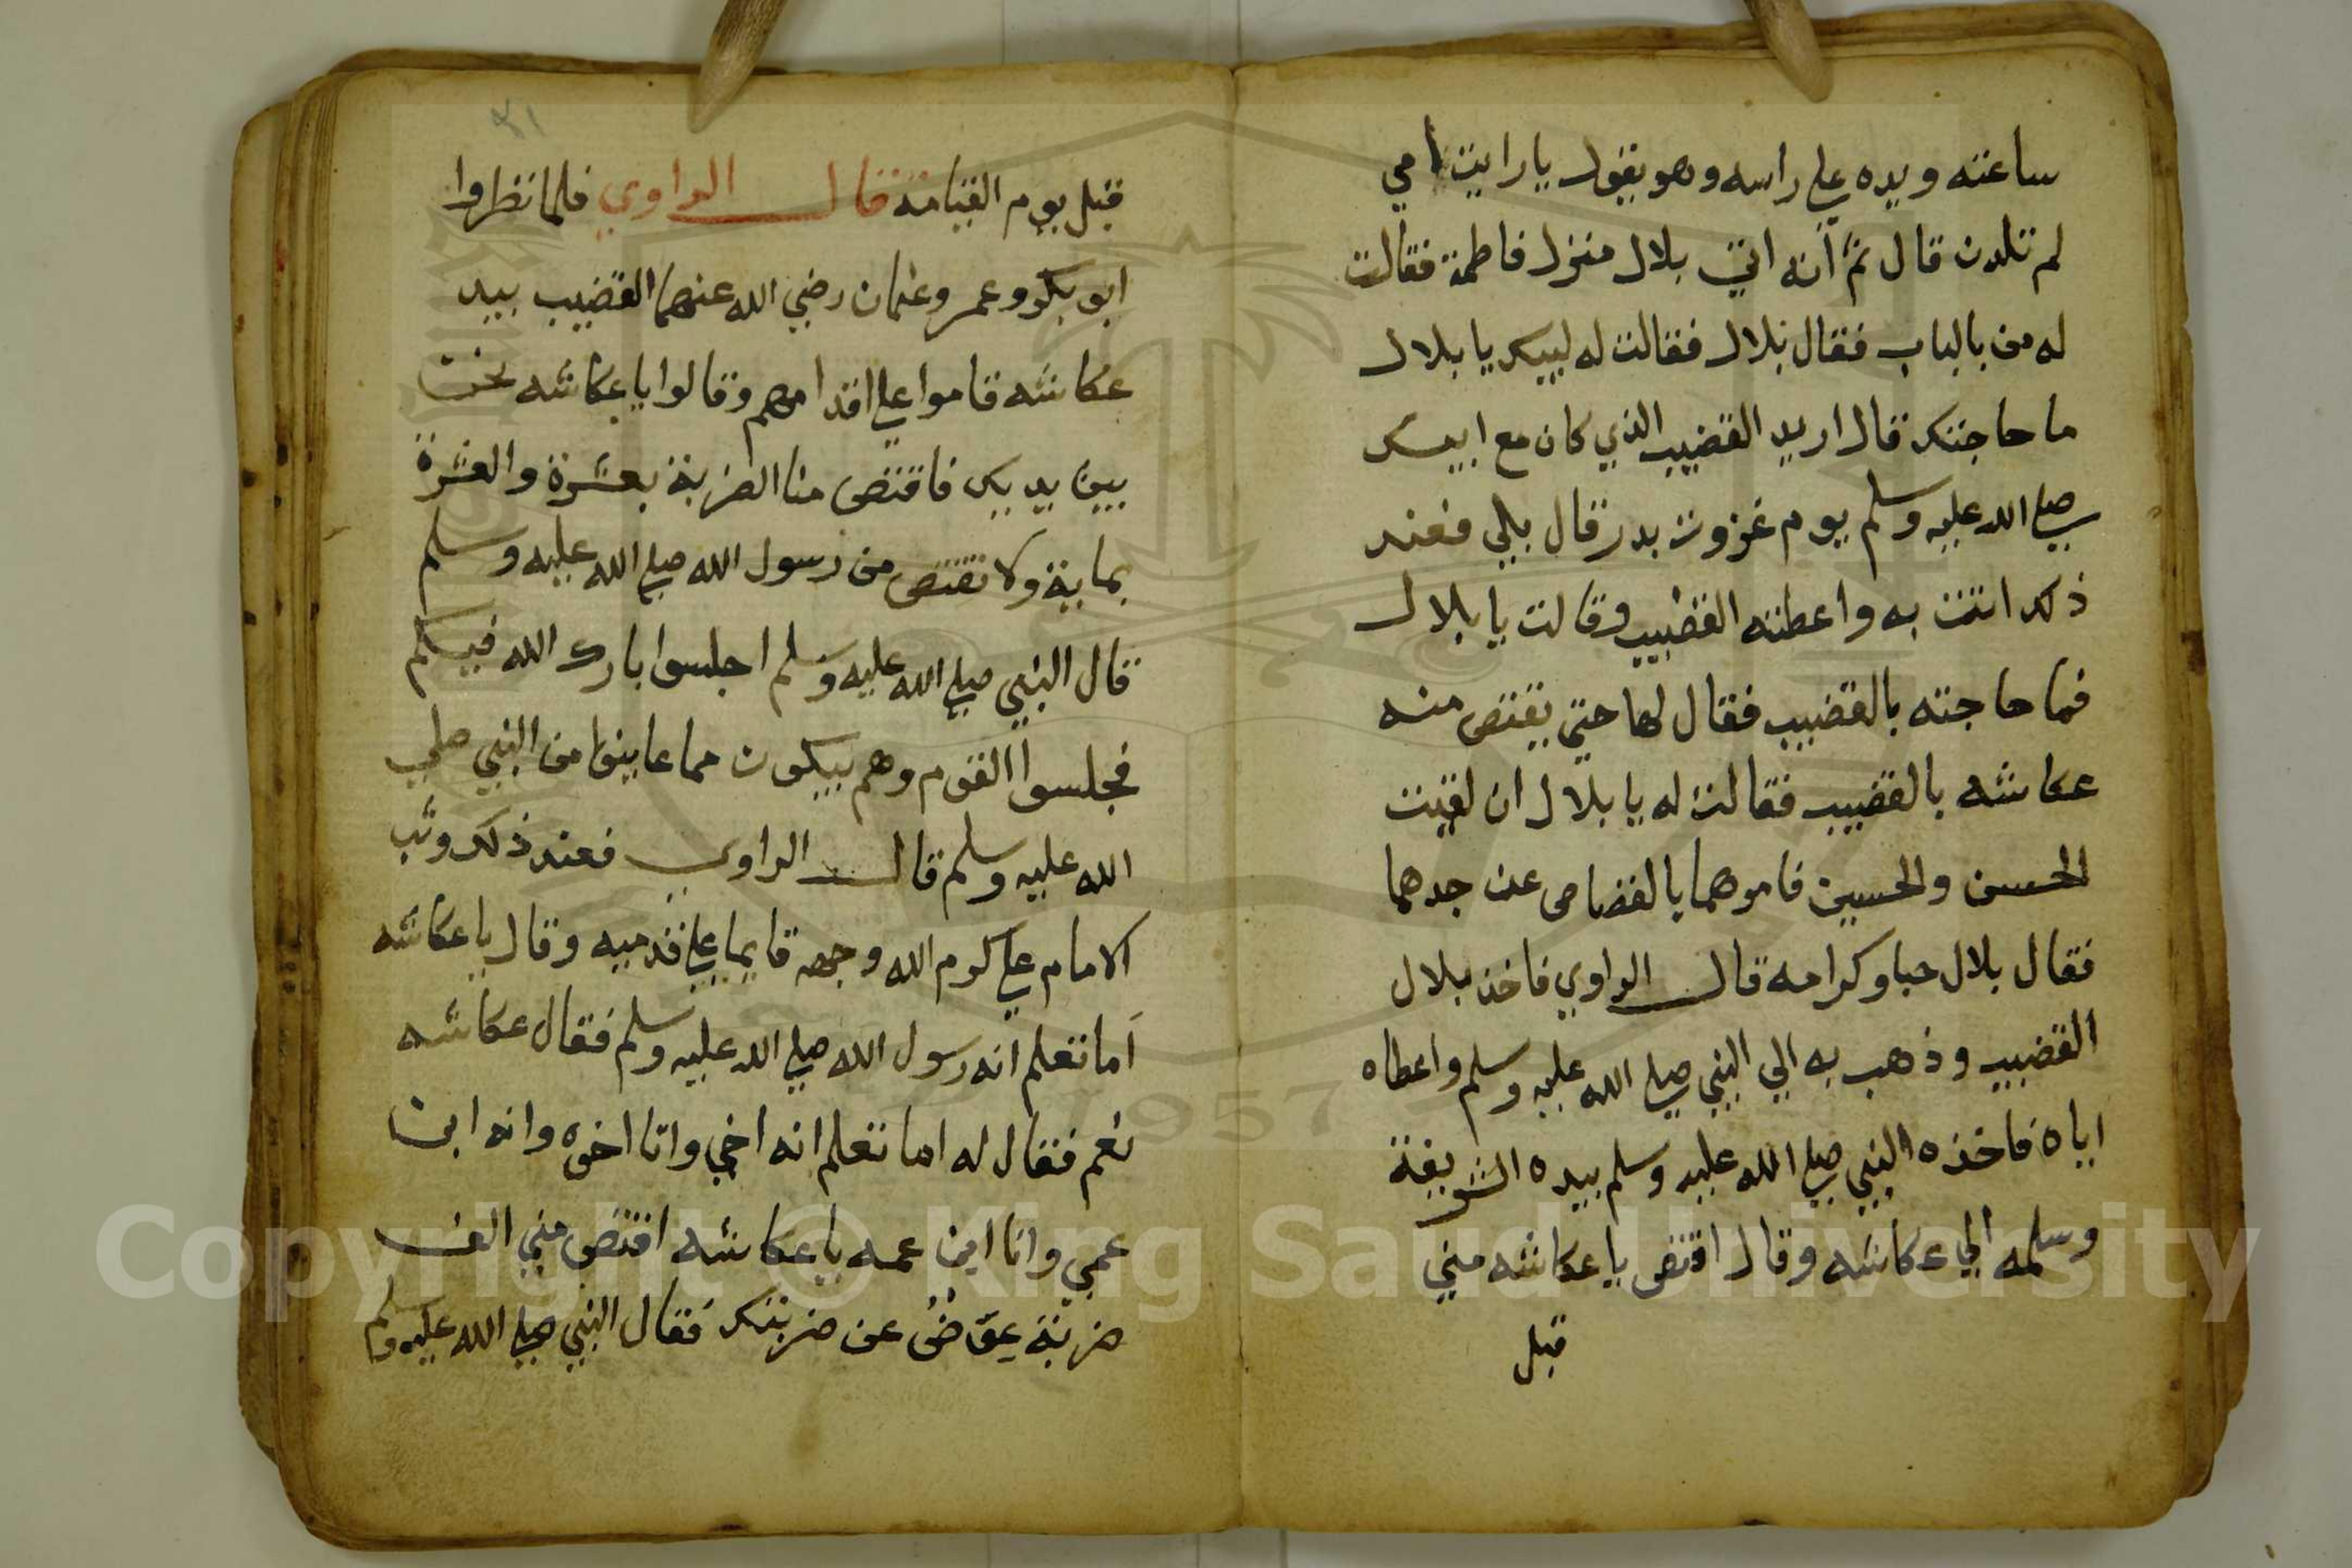 ساعته ويده علي راسه وهو يقول يا رايت امي
لم تلدن قال ثم انه اتي بلال منزل فاطمة فقالت
له من بالباب فقال بلال فقالت له لبيك يا بلال
ما حاجتك قال اريد القضيب الذي كان مع ابيك
صلي الله عليه وسلم يوم غزوت بدر قال بلي فعند
ذلك اتت به واعطته القضيب وقالت يا بلال
فما حاجته بالقضيب فقال لها حتي يقتص منه
عكاشه بالقضيب فقالت له يا بلال ان لقيت
الحسن والحسين فاموهما يا لقصاص عن جدهما
فقال بلال حبا وكرامه قال الراوي فاخذ بلال
القضيب وذهب به الي النبي صلي الله عليه وسلم واعطاه
اياه فاخذه النبي صلي الله عليه وسلم بيده الشريفة
وسلمه الي عكاشه وقال اقتص يا عكاشه مني
قبل
٤١
قبل يوم القيامه قال الراوي فلما نظروا
ابو بكر وعمر وعثمان رضي الله عنهما القضيب بيد
عكاشه قاموا علي اقدامهم وقالوا يا عكاشه نحن
بين يديك فاقتص منا الضربة بعشرة والعشرة
بماية ولا تقتص من رسول الله صلي الله عليه وسلم
قال النبي صلي الله عليه وسلم اجلسوا بارك الله فيكم
فجلسوا القوم وهم يبكون مما عاينوا من النبي صلي
الله عليه وسلم قال الراوي فعند ذلك وثب
الامام علي كرم الله وجهه قايما علي قدميه وقال يا عكاشه
اما تعلم انه رسول الله صلي الله عليه وسلم فقال عكاشه
نعم فقال له اما تعلم انه اخي وانا اخوه وانه ابن
عمي وانا ابن عمه يا عكاشه اقتص مني الف
ضربة عوّضُ عن ضربتك فقال النبي صلي الله عليه وسلم
Copyright © King Saud University
1957